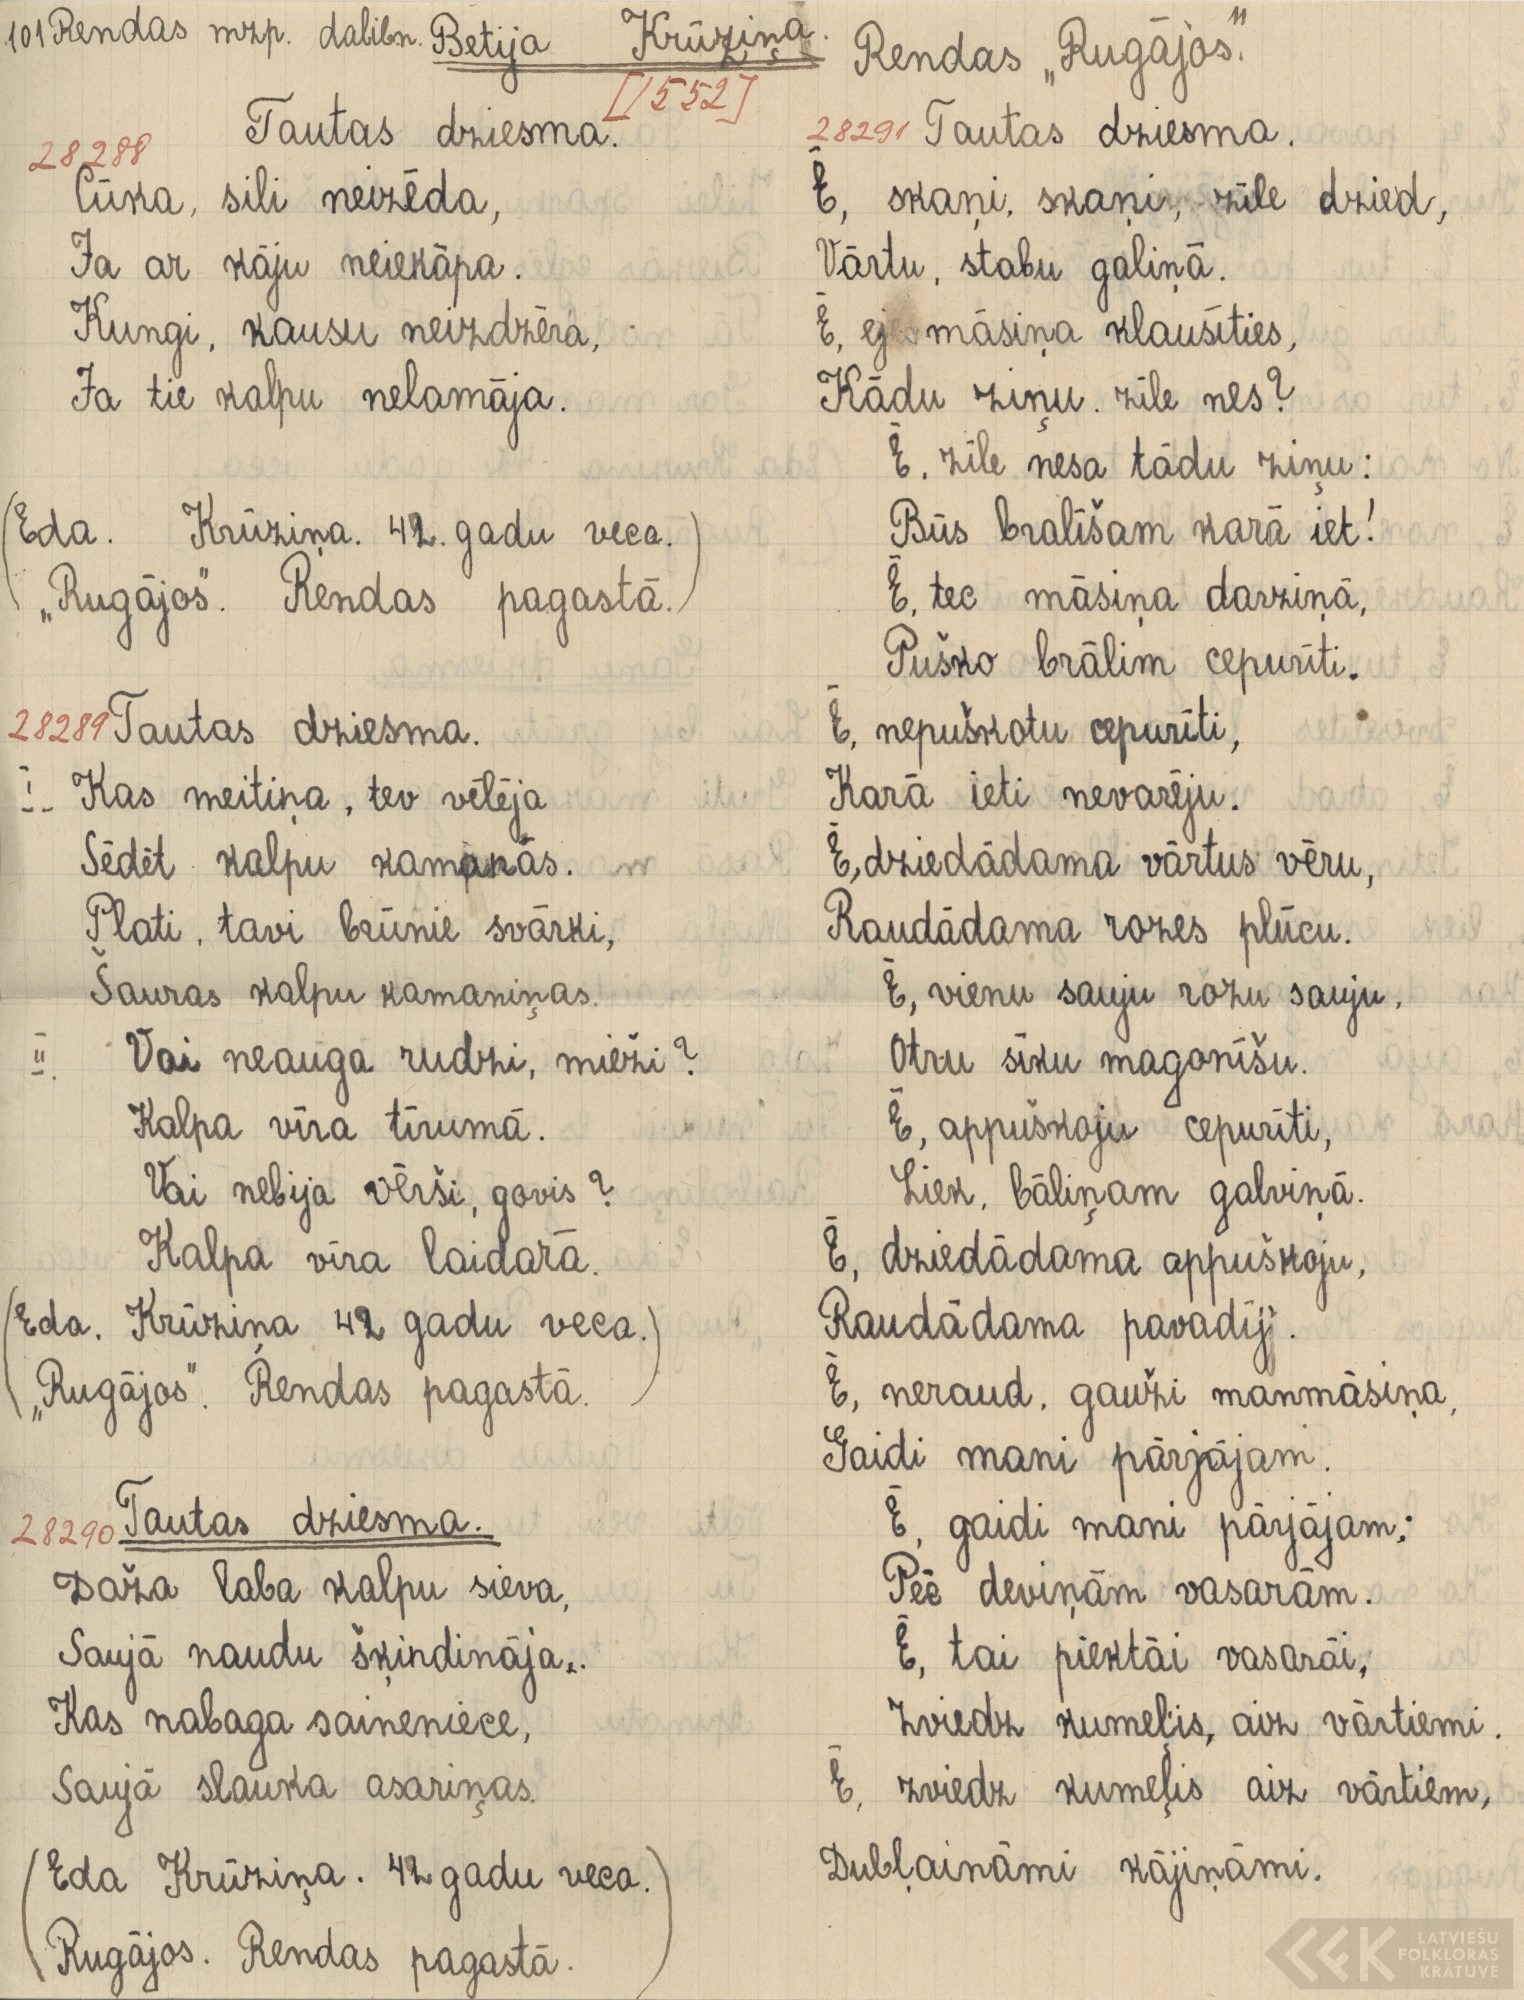 101 Rendas mzp. dabibn. Betija Krūziņa. Rendas „Rugājos".
[1552]
28288 Tautas dziesma.
Cūka, sili neizēda,
Ja ar kāju neiekāpa.
Kungi, kausu neizdzēra,
Ja tie kalpu nelamāja.
(Eda. Krūziņa. 42. gadu veca.
„Rugājos". Rendas pagastā.)
28289 Tautas dziesma.
I. Kas meitiņa, tev vēlēja
Sēdēt kalpu kamanās.
Plati, tavi brūnie svārki,
Šauras kalpu kamaniņas.
II. Vai neauga rudzi, mieži?
Kalpa vīra tīrumā.
Vai nebija vērši, govis?
Kalpa vīra laidarā.
(Eda. Krūziņa 42 gadu veca.
„Rugājos". Rendas pagastā.)
28290 Tautas dziesma.
Daža laba kalpu sieva,
Saujā naudu šķindināja..
Kas nabaga saineniece,
Saujā slauka asariņas.
(Eda Krūziņa. 42 gadu veca.
Rugājos. Rendas pagastā.)
28291 Tautas dziesma.
Ē, skaņi, skaņi, zīle dzied,
Vārtu, stabu galiņā.
Ē, ej māsiņa klausīties,
Kādu ziņu. zīle nes?
Ē, zīle nesa tādu ziņu:
Būs bralīšam karā iet!
Ē, tec māsiņa darziņā,
Puško brālim cepurīti.
Ē, nepuškotu cepurīti,
Karā ieti nevarēju.
Ē, dziedādama vārtus vēru,
Raudādama rozes plūcu.
Ē, vienu sauju rožu sauju,
Otru sīku magonīšu.
Ē, appuškoju cepurīti,
Liek, bāliņam galviņā.
Ē, dziedādama appuškoju,
Raudādama pavadīj.
Ē, neraud, gauži manmāsiņa,
Gaidi mani pārjājam.
Ē, gaidi mani pārjājam;
Pēc deviņām vasarām.
Ē, tai piektāi vasarāi,
Zviedz kumeļis, aiz vārtiemi.
Ē, zviedz kumeļis aiz vārtiem,
Dubļaināmi kājiņāmi.
LATVIEŠU
FOLKLORAS
KRĀTUVE